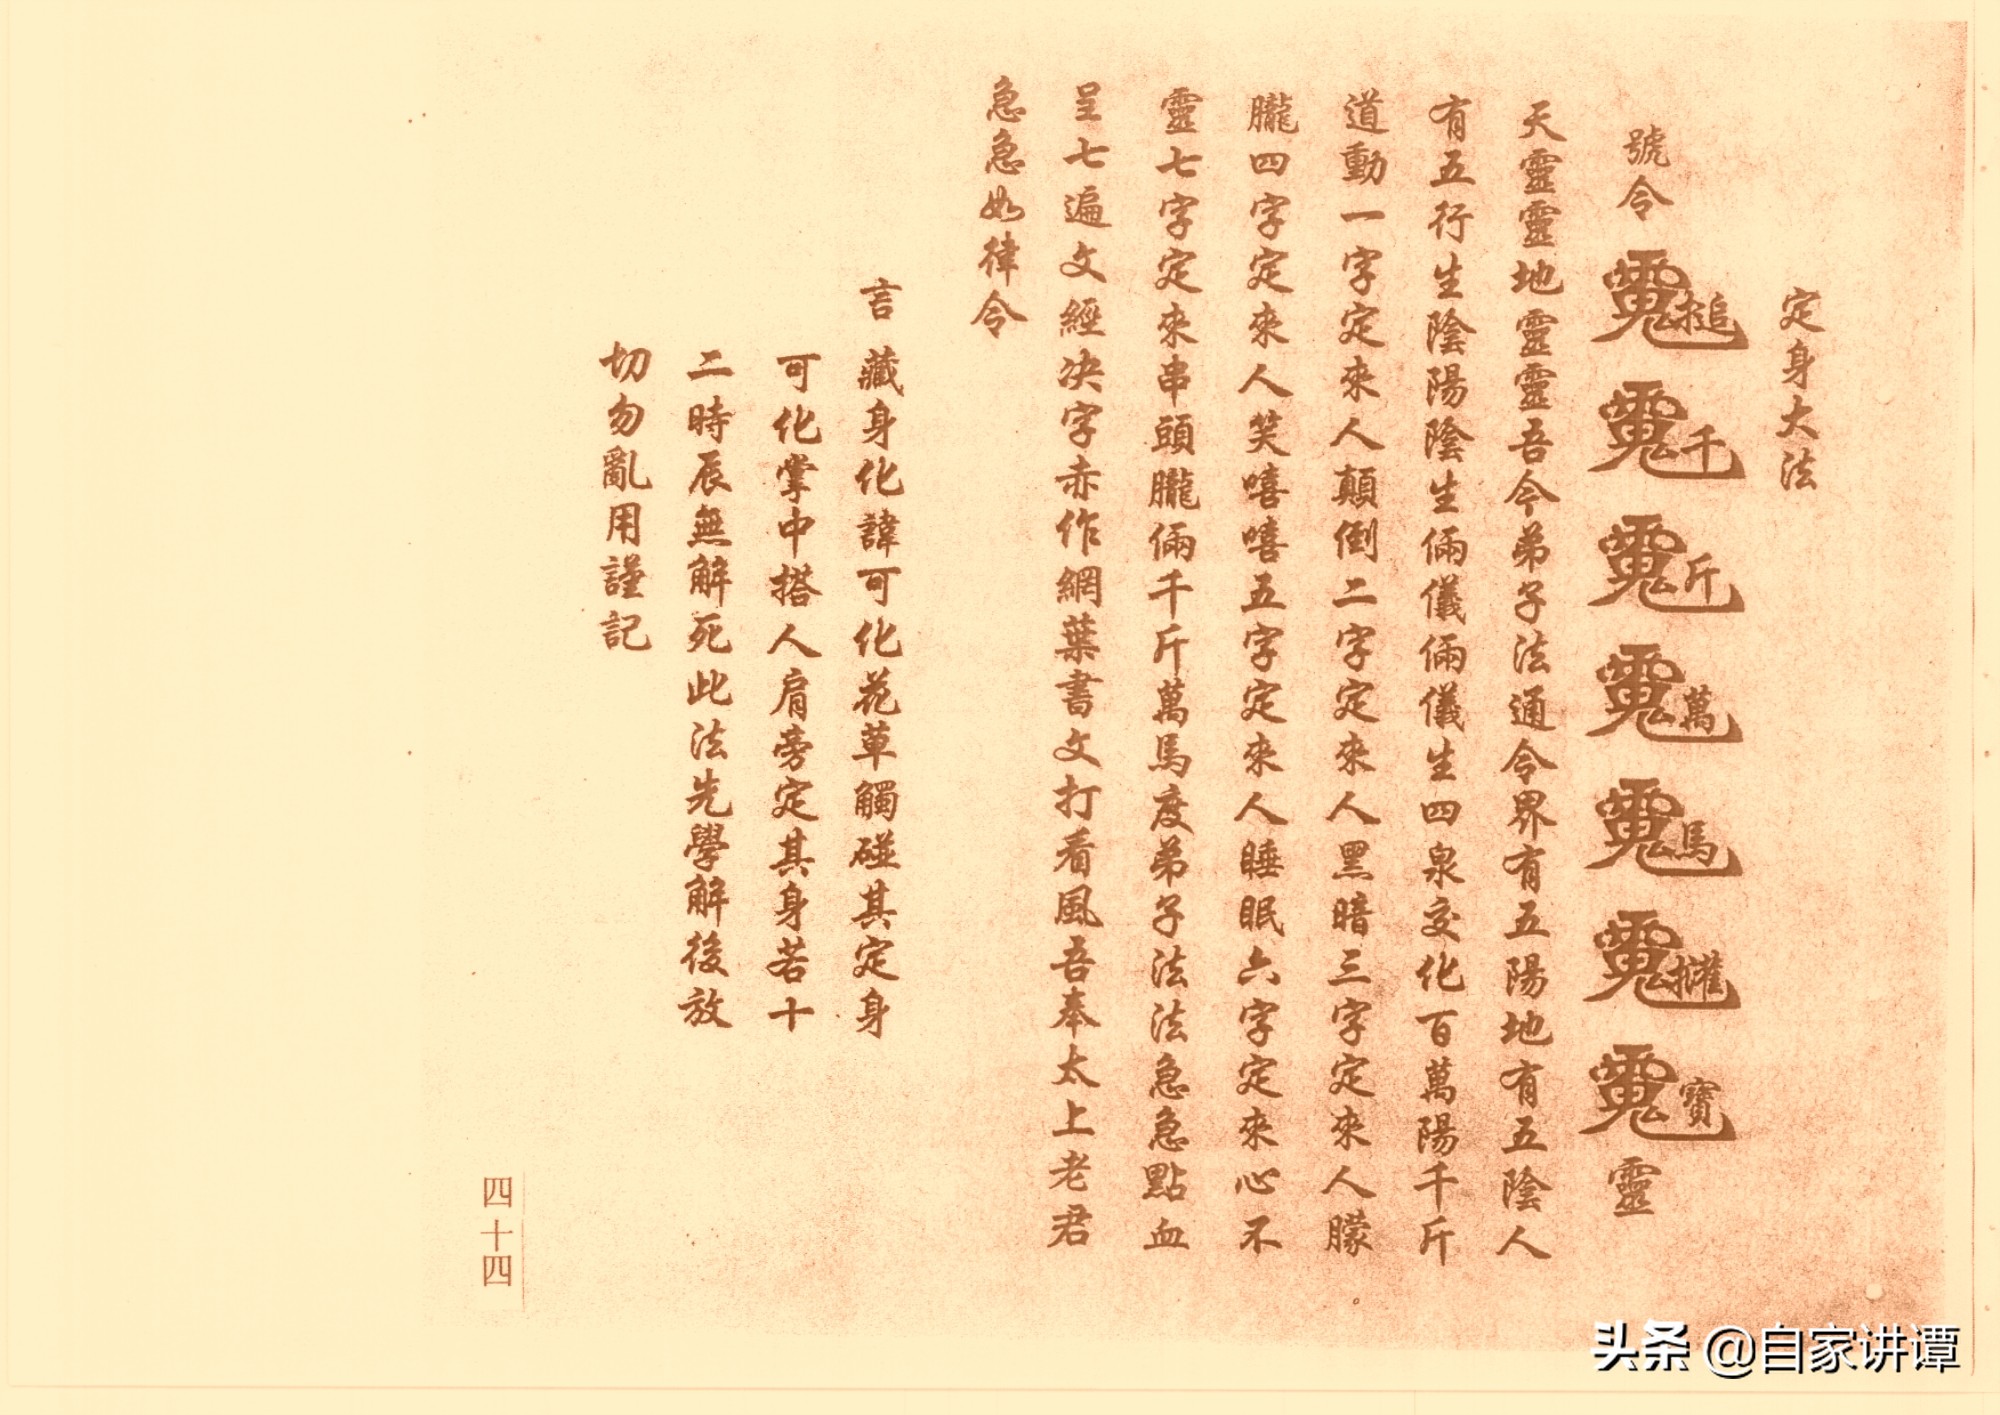 定身大法
號令 搥 千 斤 萬 馬 寶 靈
天靈靈地靈靈吾今弟子法通今界有五陽地有五陰人
有五行生陰陽陰生倆儀倆儀生四泉交化百萬陽千斤
道動一字定來人顛倒二字定來人黑暗三字定來人朦
朧四字定來人笑嘻嘻五字定來人睡眠六字定來心不
靈七字定來串頭朧倆千斤萬馬度弟子法法急急點血
呈七遍文經決字赤作網葉書文打看風吾奉太上老君
急急如律令
言 藏身化諱可化花草觸碰其定身
可化掌中搭人肩旁定其身若十
二時辰無解死此法先學解後放
切勿亂用謹記
四十四
头条 @自家讲谭